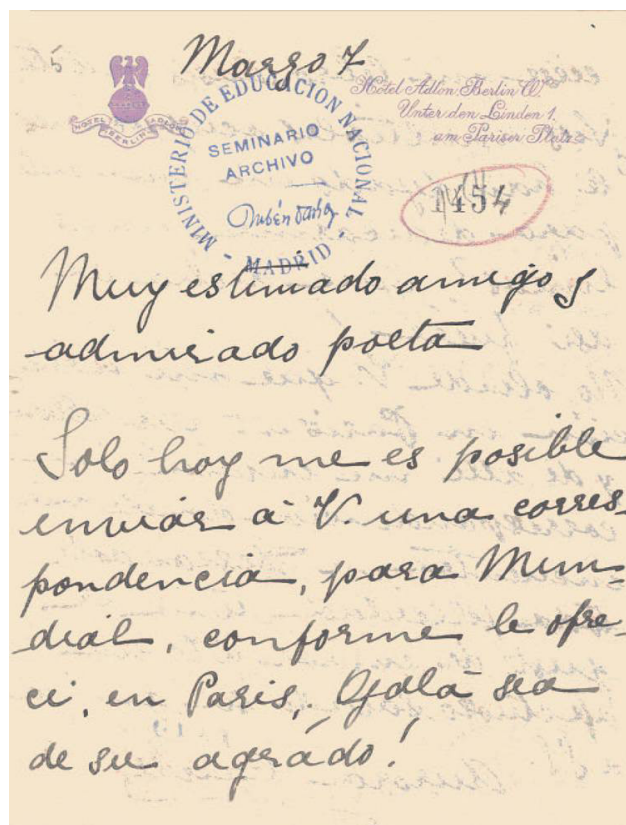 5
Marzo 7
HOTEL ADLON
BERLIN
Hotel Adlon. Berlin W.
Unter den Linden 1.
am Pariser Platz
MINISTERIO DE EDUCACION NACIONAL
- MADRID -
SEMINARIO
ARCHIVO
Rubén Darío
1454
Muy estimado amigo y
admirado poeta
Solo hoy me es posible
enviar á V. una corres-
pondencia, para Mun-
dial, conforme le ofre-
ci, en Paris, ¡Ojalá sea
de su agrado!